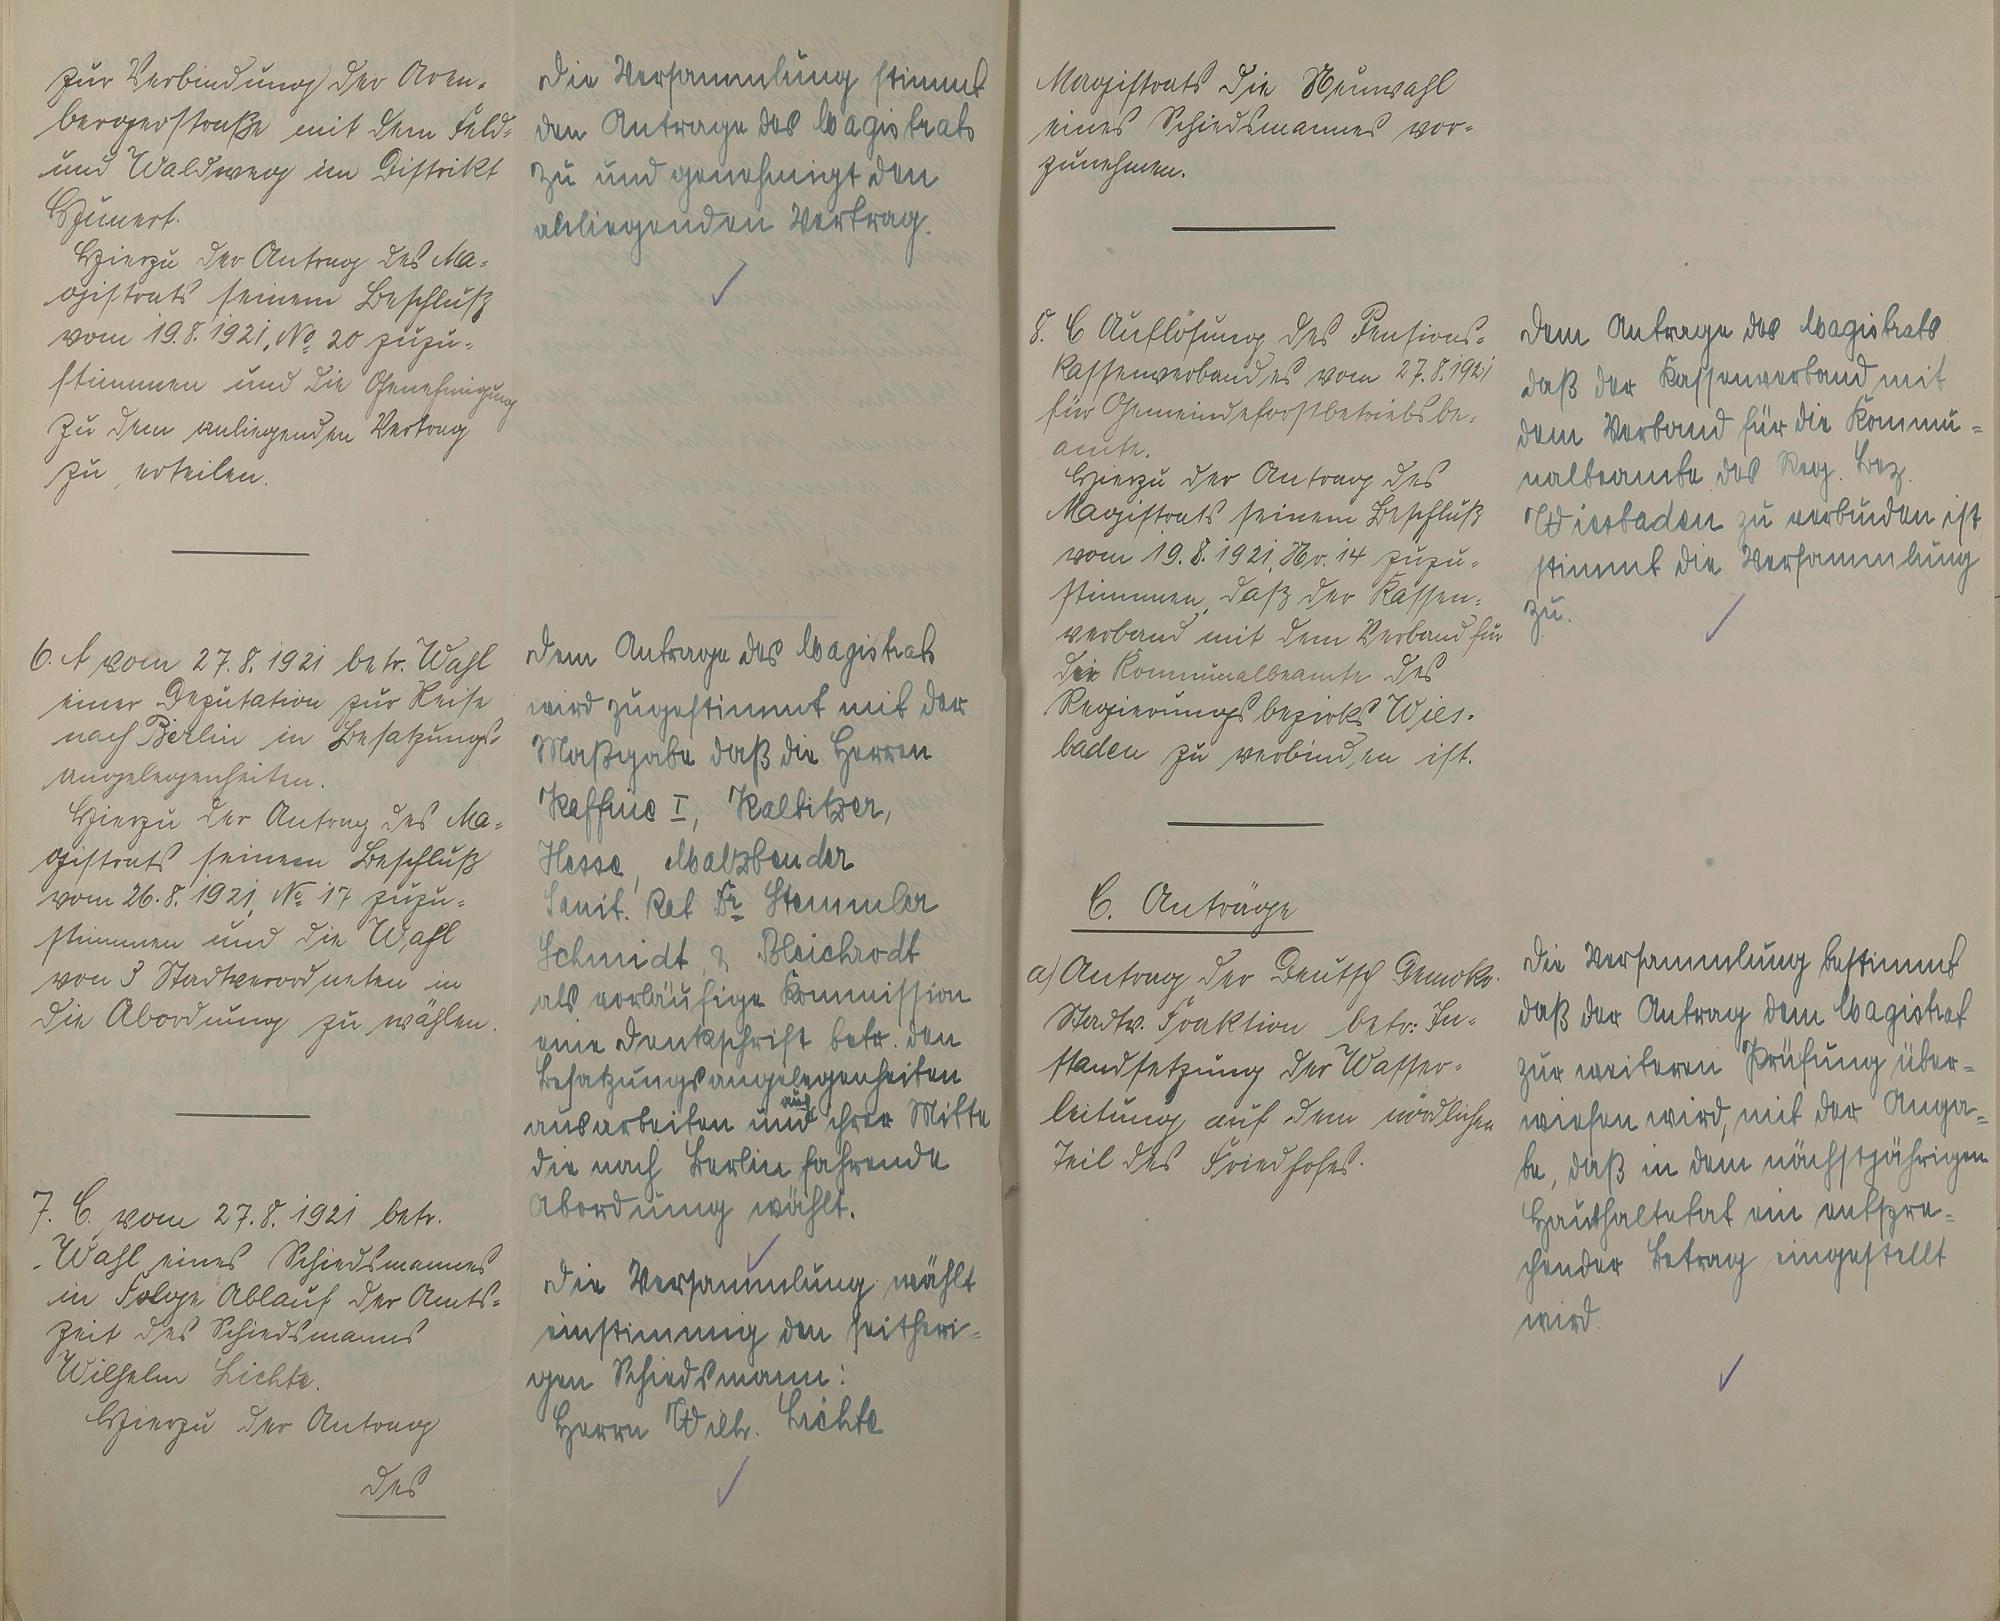 zur Verbindung der Aren-
bergerstraße mit dem Feld-
und Waldweg im Distrikt
Hierzu der Antrag des Ma-
gistrats seinem Beschluß
vom 19.8.1921, No 20 zuzu-
stimmen und die Genehmigung
zu dem anliegenden Vertrag
zu erteilen.
Die Versammlung stimmt
den Antrage des Magistrats
zu und genehmigt den
abliegenden Vertrag.
6. A vom 27.8.1921 betr. Wahl
einer Deputation zur Reise
nach Berlin in Besatzungs-
angelegenheiten.
Hierzu der Antrag des Ma-
gistrats seinem Beschluß
vom 26.8.1921, No 17 zuzu-
stimmen und die Wahl
von 3 Stadtverordneten in
die Abordnung zu wählen.
Dem Antrage des Magistrats
wird zugestimmt mit der
Maßgabe daß die Herren
I, Kalbitzer,
Hesse, Malzbender
Sanit. Rat Dr Stemmler
Schmidt & Bleichrodt
als vorläufige Kommission
eine Denkschrift betr. den
Besatzungsangelegenheiten
ausarbeiten und aus ihrer Mitte
die nach Berlin fahrende
Abordnung wählt.
7. C. vom 27.8.1921 betr.
Wahl eines Schiedsmannes
in Folge Ablauf der Amts-
zeit des Schiedsmanns
Wilhelm Lichte.
Hierzu der Antrag
des
Die Versammlung wählt
einstimmig den seitheri-
gen Schiedsmann:
Herrn Wilh. Lichte
Magistrats die Neuwahl
eines Schiedsmannes vor-
zunehmen.
8. C Auflösung des Pensions-
kassenverbandes vom 27.8.1921
für Gemeindeforstbetriebsbe-
amte.
Hierzu der Antrag des
Magistrats seinem Beschluß
vom 19.8.1921, Nr. 14 zuzu-
stimmen, daß der Kassen-
verband mit dem Verband für
die Kommunalbeamte des
Regierungsbezirks Wies-
baden zu verbinden ist.
Dem Antrage des Magistrats
daß der Kassenverband mit
dem Verband für die Kommu-
nalbeamte des Reg. Bez.
Wiesbaden zu verbinden ist
stimmt die Versammlung
zu.
C. Anträge
a) Antrag der Deutsch Demokr.
Stadtv. Fraktion betr: In-
standsetzung der Wasser-
leitung auf dem nördlichen
Teil des Friedhofes.
Die Versammlung bestimmt
daß der Antrag dem Magistrat
zur weiteren Prüfung über-
wiesen wird, mit der Anga-
be, daß in dem nächstjährigen
Haushaltetat ein entspre-
chender Betrag eingestellt
wird.